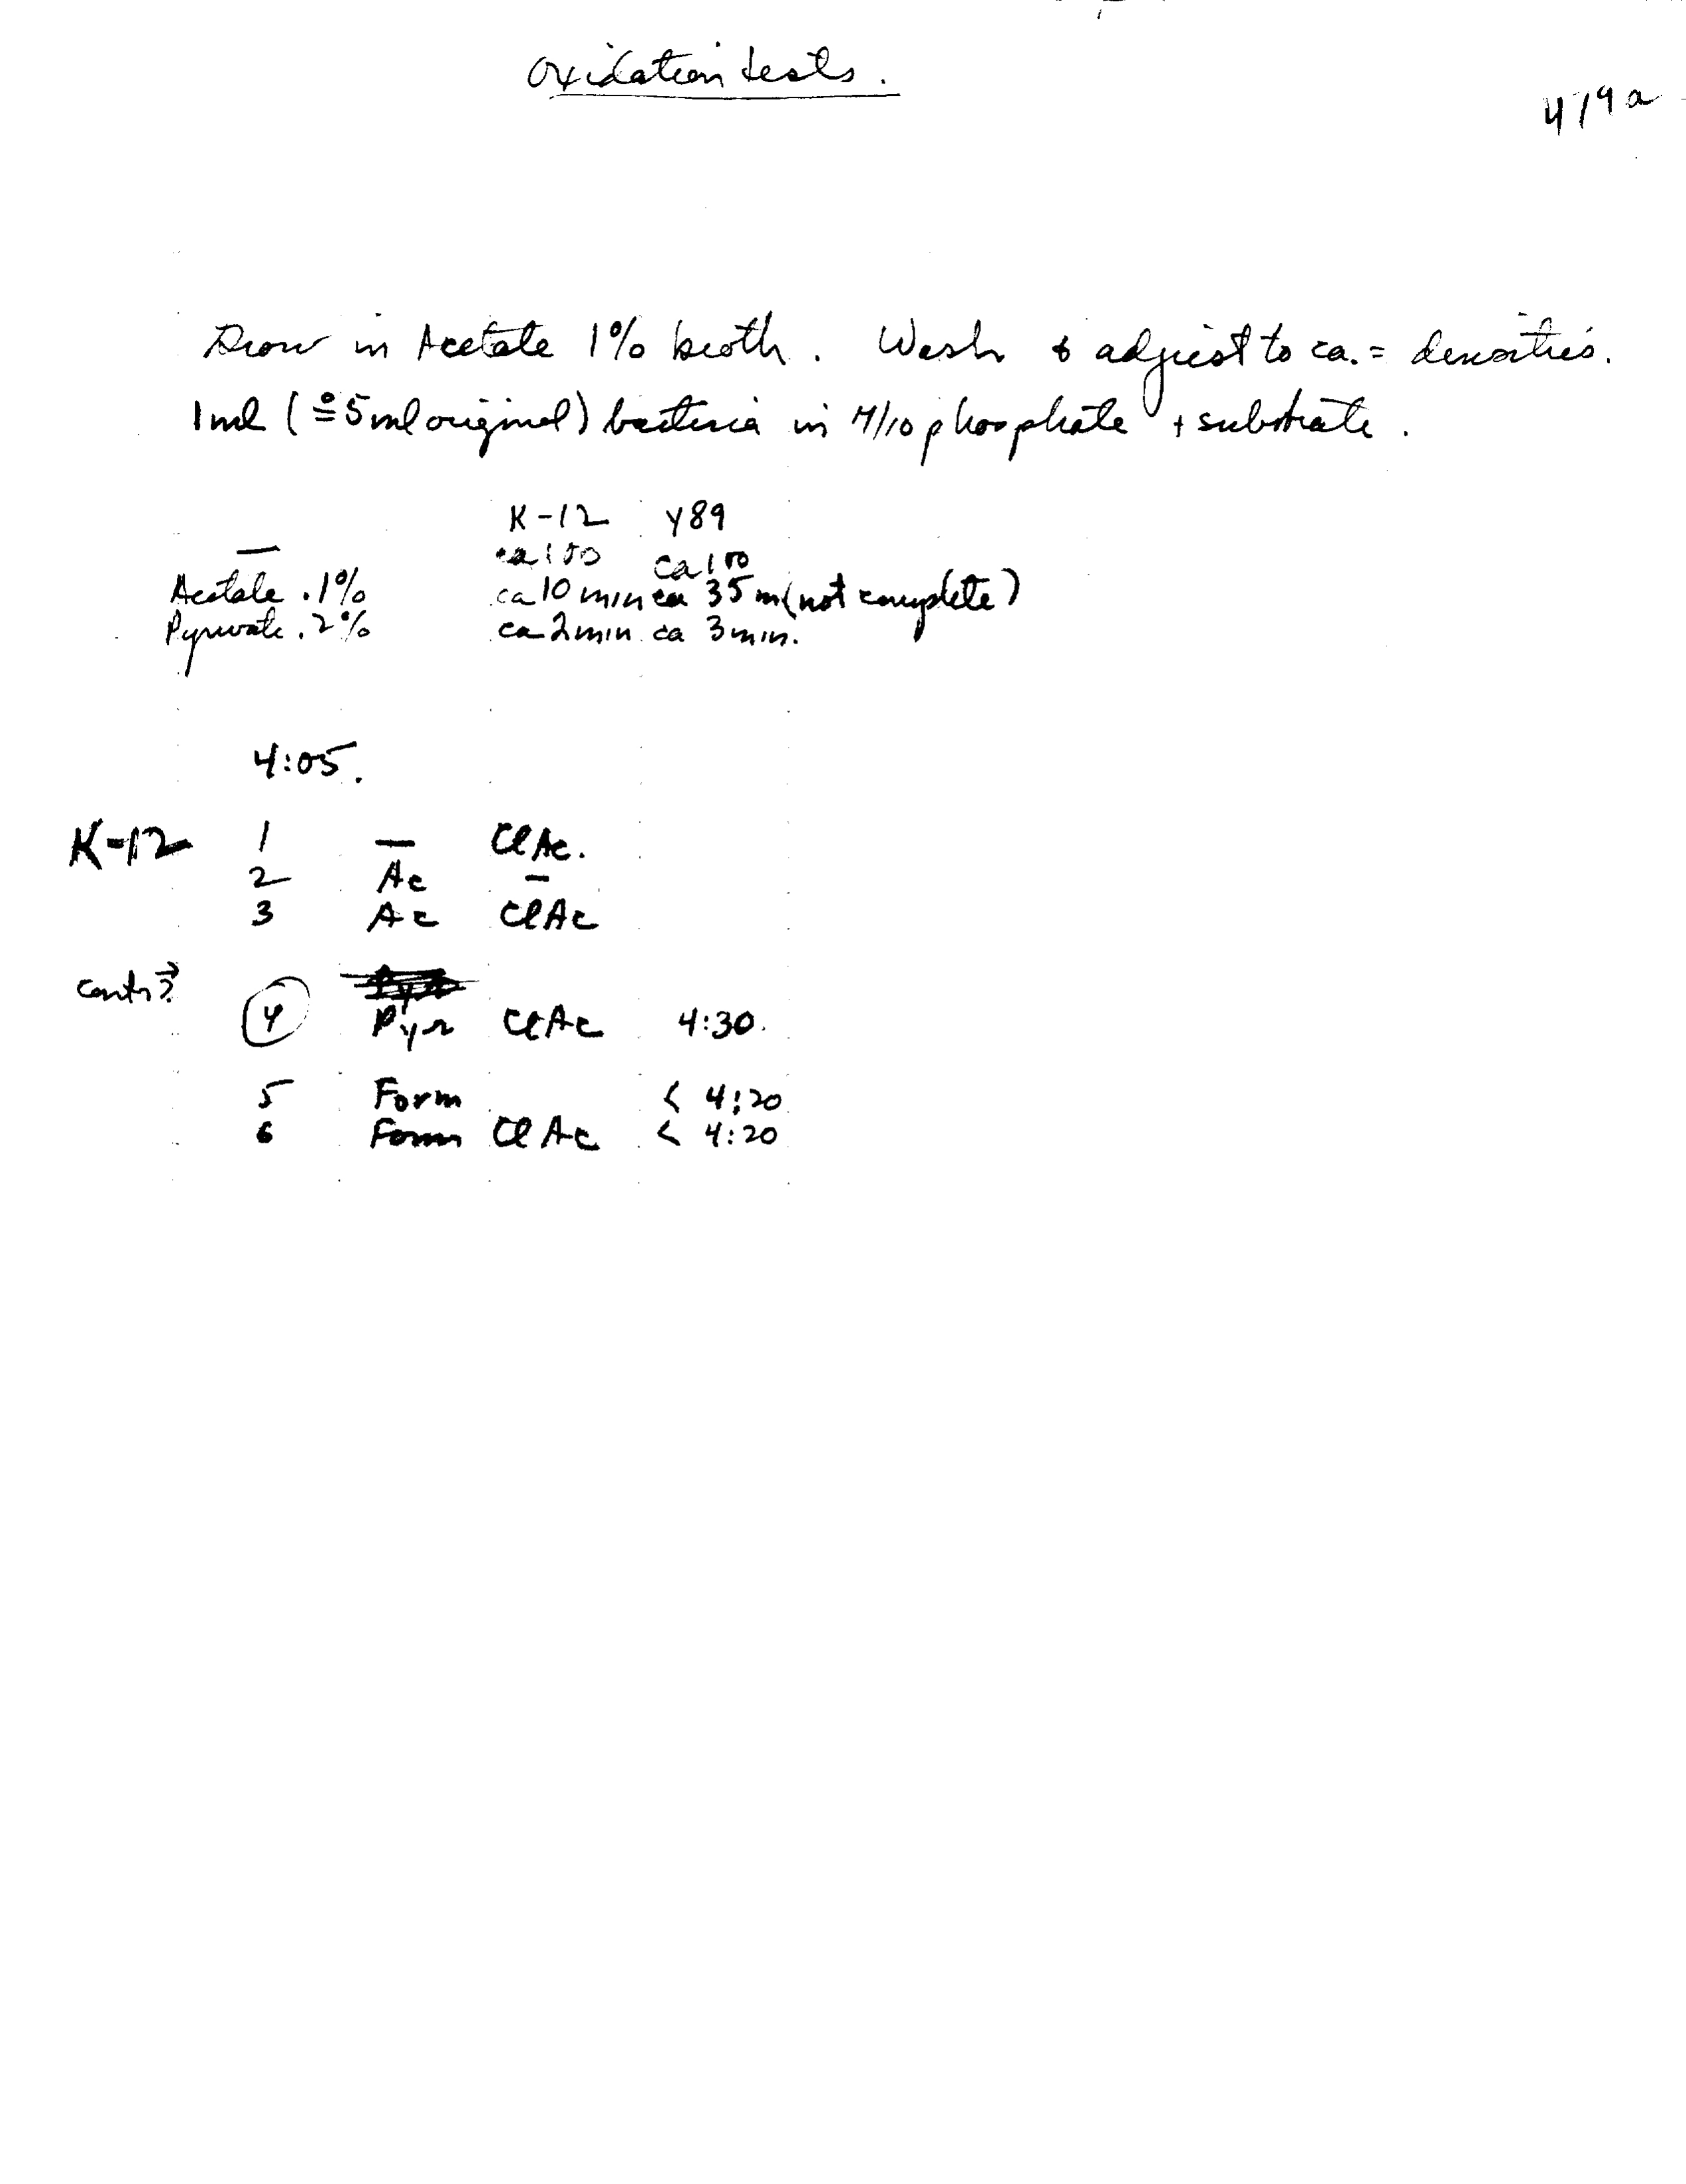 Oxidation tests.
419a
Grow in Acetate 1% broth. Wash & adjust to ca. = densities.
1 ml (≗5 ml original) bacteria in M/10 phosphate + substrate.
K-12 Y89
— ca 100 ca 100
Acetate .1% ca 10 min ca 35 m (not complete)
Pyruvate .2% ca 2 min. ca 3 min.
4:05.
K-12 1 — ClAc.
2 Ac —
3 Ac ClAc
4 Pyr ClAc 4:30.
5 Form < 4:20
6 Form ClAc < 4:20